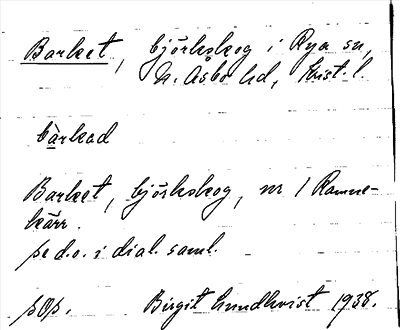 Barket, björkskog i Rya sn,
N. Åsbo hd, Krist. l.
bàrkad
Barket, björkskog, nr 1 Ramne-
kärr.
se d.o. i dial. saml.
Birgit Lundkvist 1938.